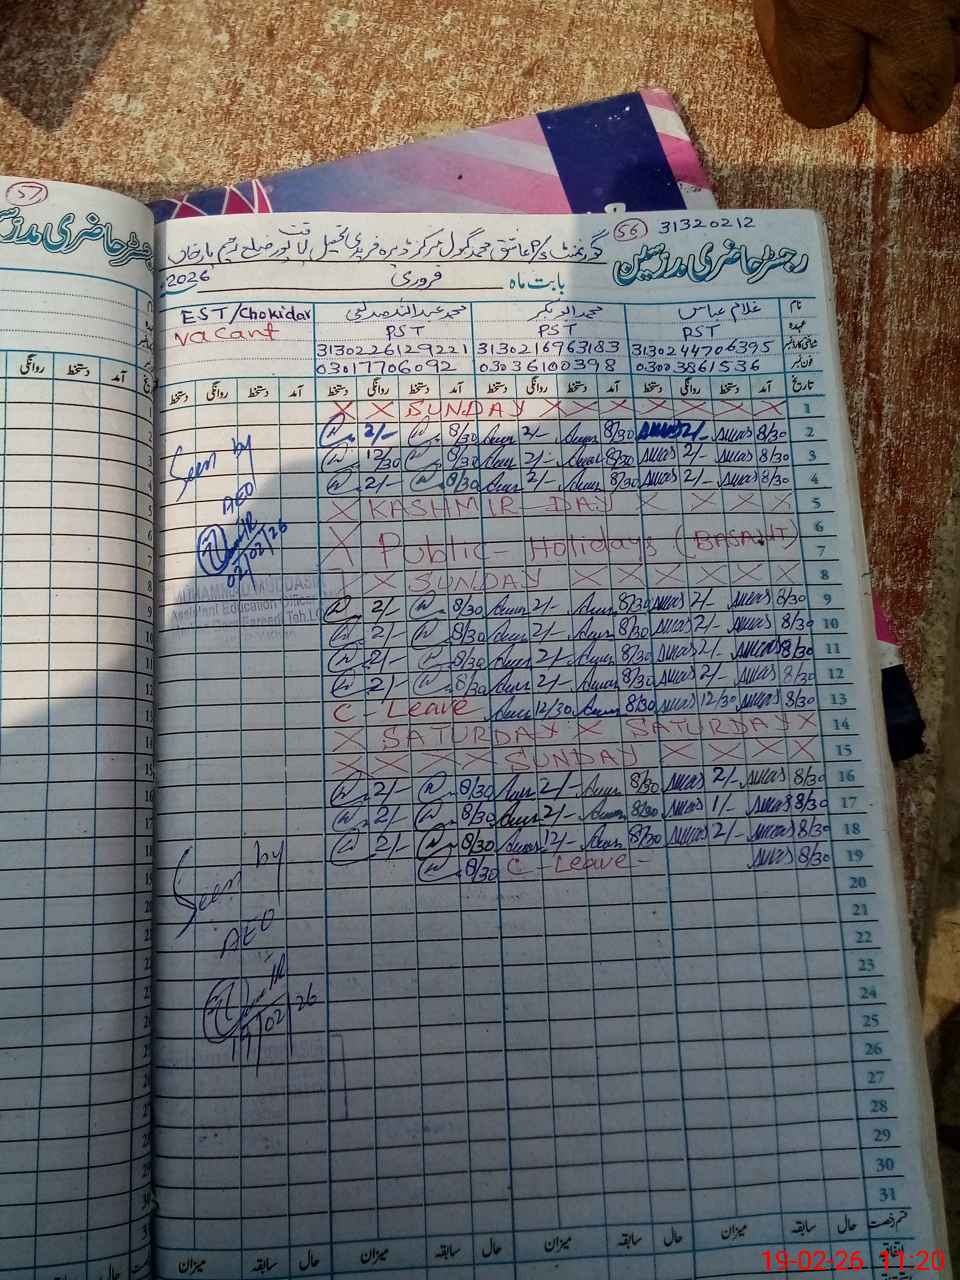 57
56
31320212
رجسٹر حاضری مدرسین
گورنمنٹ P/S عاشق محمد گول مرکز ڈیرہ فریدی تحصیل لیاقت پور ضلع رحیم یار خان
بابت ماہ فروری 2026
نام غلام عباس محمد ابوبکر محمد عبداللہ صدیقی EST/Chokidar
عہدہ PST PST PST Vacant
شناختی کارڈ نمبر 3130244706395 3130216963183 3130226129221
فون نمبر 03003861536 03036100398 03017706092
تاریخ آمد دستخط روانگی دستخط آمد دستخط روانگی دستخط آمد دستخط روانگی دستخط آمد دستخط روانگی دستخط
1 X X SUNDAY X X X X X X X X
2 8/30 2/- 8/30 2/- 8/30 2/-
3 8/30 2/- 8/30 2/- 8/30 12/30
4 8/30 2/- 8/30 2/- 8/30 2/-
5 X KASHMIR DAY X X X X
6
7 X Public-Holidays (BASANT)
8 X X SUNDAY X X X X X X X
9 8/30 2/- 8/30 2/- 8/30 2/-
10 8/30 2/- 8/30 2/- 8/30 2/-
11 8/30 2/- 8/30 2/- 8/30 2/-
12 8/30 2/- 8/30 2/- 8/30 2/-
13 8/30 12/30 8/30 12/30 C-Leave
14 X SATURDAY X X SATURDAY X
15 X X X X SUNDAY X X X X X
16 8/30 2/- 8/30 2/- 8/30 2/-
17 8/30 1/- 8/30 2/- 8/30 2/-
18 8/30 2/- 8/30 12/- 8/30 2/-
19 8/30 C-Leave- 8/30
20
21
22
23
24
25
26
27
28
29
30
31
Seen by
AEO
02/02/26
Assistant Education Officer
Seen by
AEO
17/02/26
ختم رخصت حال سابقہ میزان حال سابقہ میزان حال سابقہ میزان حال سابقہ میزان
اتفاقیہ
19-02-26 11:20